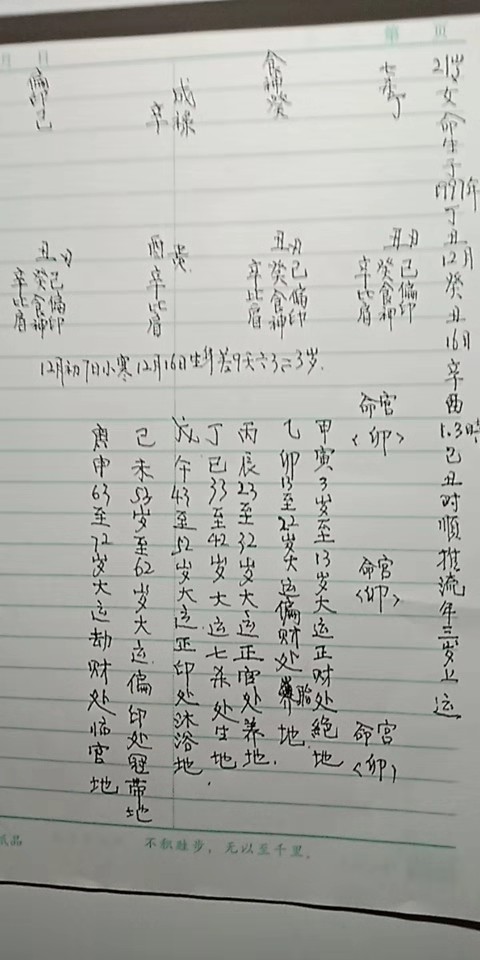 第 页
月 日
21岁女命生于1997年丁丑12月癸丑16日辛酉1.3時己丑时順推流年三岁上运
七杀丁
食神癸
戌禄
辛
偏印己
丑月
己偏印
癸食神
辛比肩
丑月
己偏印
癸食神
辛比肩
酉
辛比肩
丑月
己偏印
癸食神
辛比肩
12月初7日小寒12月16日生年差9天六3二3岁.
命宫
<卯>
命宫
<卯>
命宫
<卯>
甲寅3岁至13岁大运正财处絕地
乙卯13至22岁大运偏财处胎地.
丙辰23至32岁大运正官处养地.
丁巳33至42岁大运七杀处生地.
戊午43至52岁大运正印处沐浴地
己未53岁至62岁大运偏印处冠帶地
庚申63至72岁大运劫财处临官地
纸品
不积跬步，无以至千里.